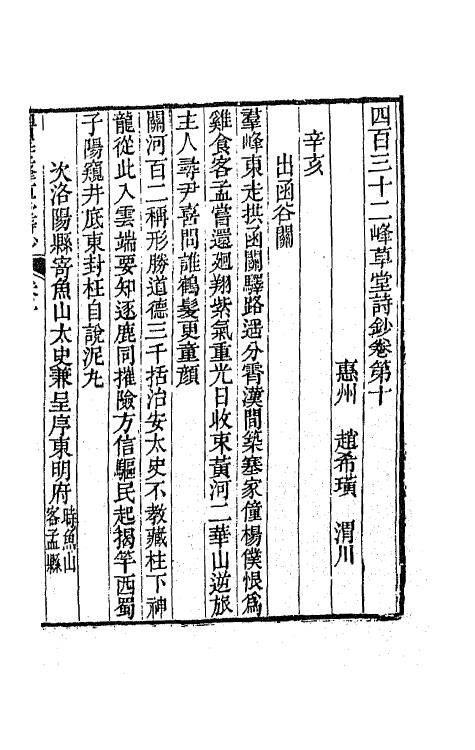 四百三十二峰草堂詩鈔卷第十
惠州　趙希璜　渭川
辛亥
出函谷關
羣峰東走拱函關驛路遥分霄漢間築塞家僮楊僕恨爲
雞食客孟嘗還廻翔紫氣重光日收束黃河二華山逆旅
主人尋尹喜問誰鶴髮更童顔
關河百二稱形勝道德三千括治安太史不教藏柱下神
龍從此入雲端要知逐鹿同摧險方信驅民起揭竿西蜀
子陽窺井底東封枉自說泥丸
次洛陽縣寄魚山太史兼呈序東明府時魚山客孟縣